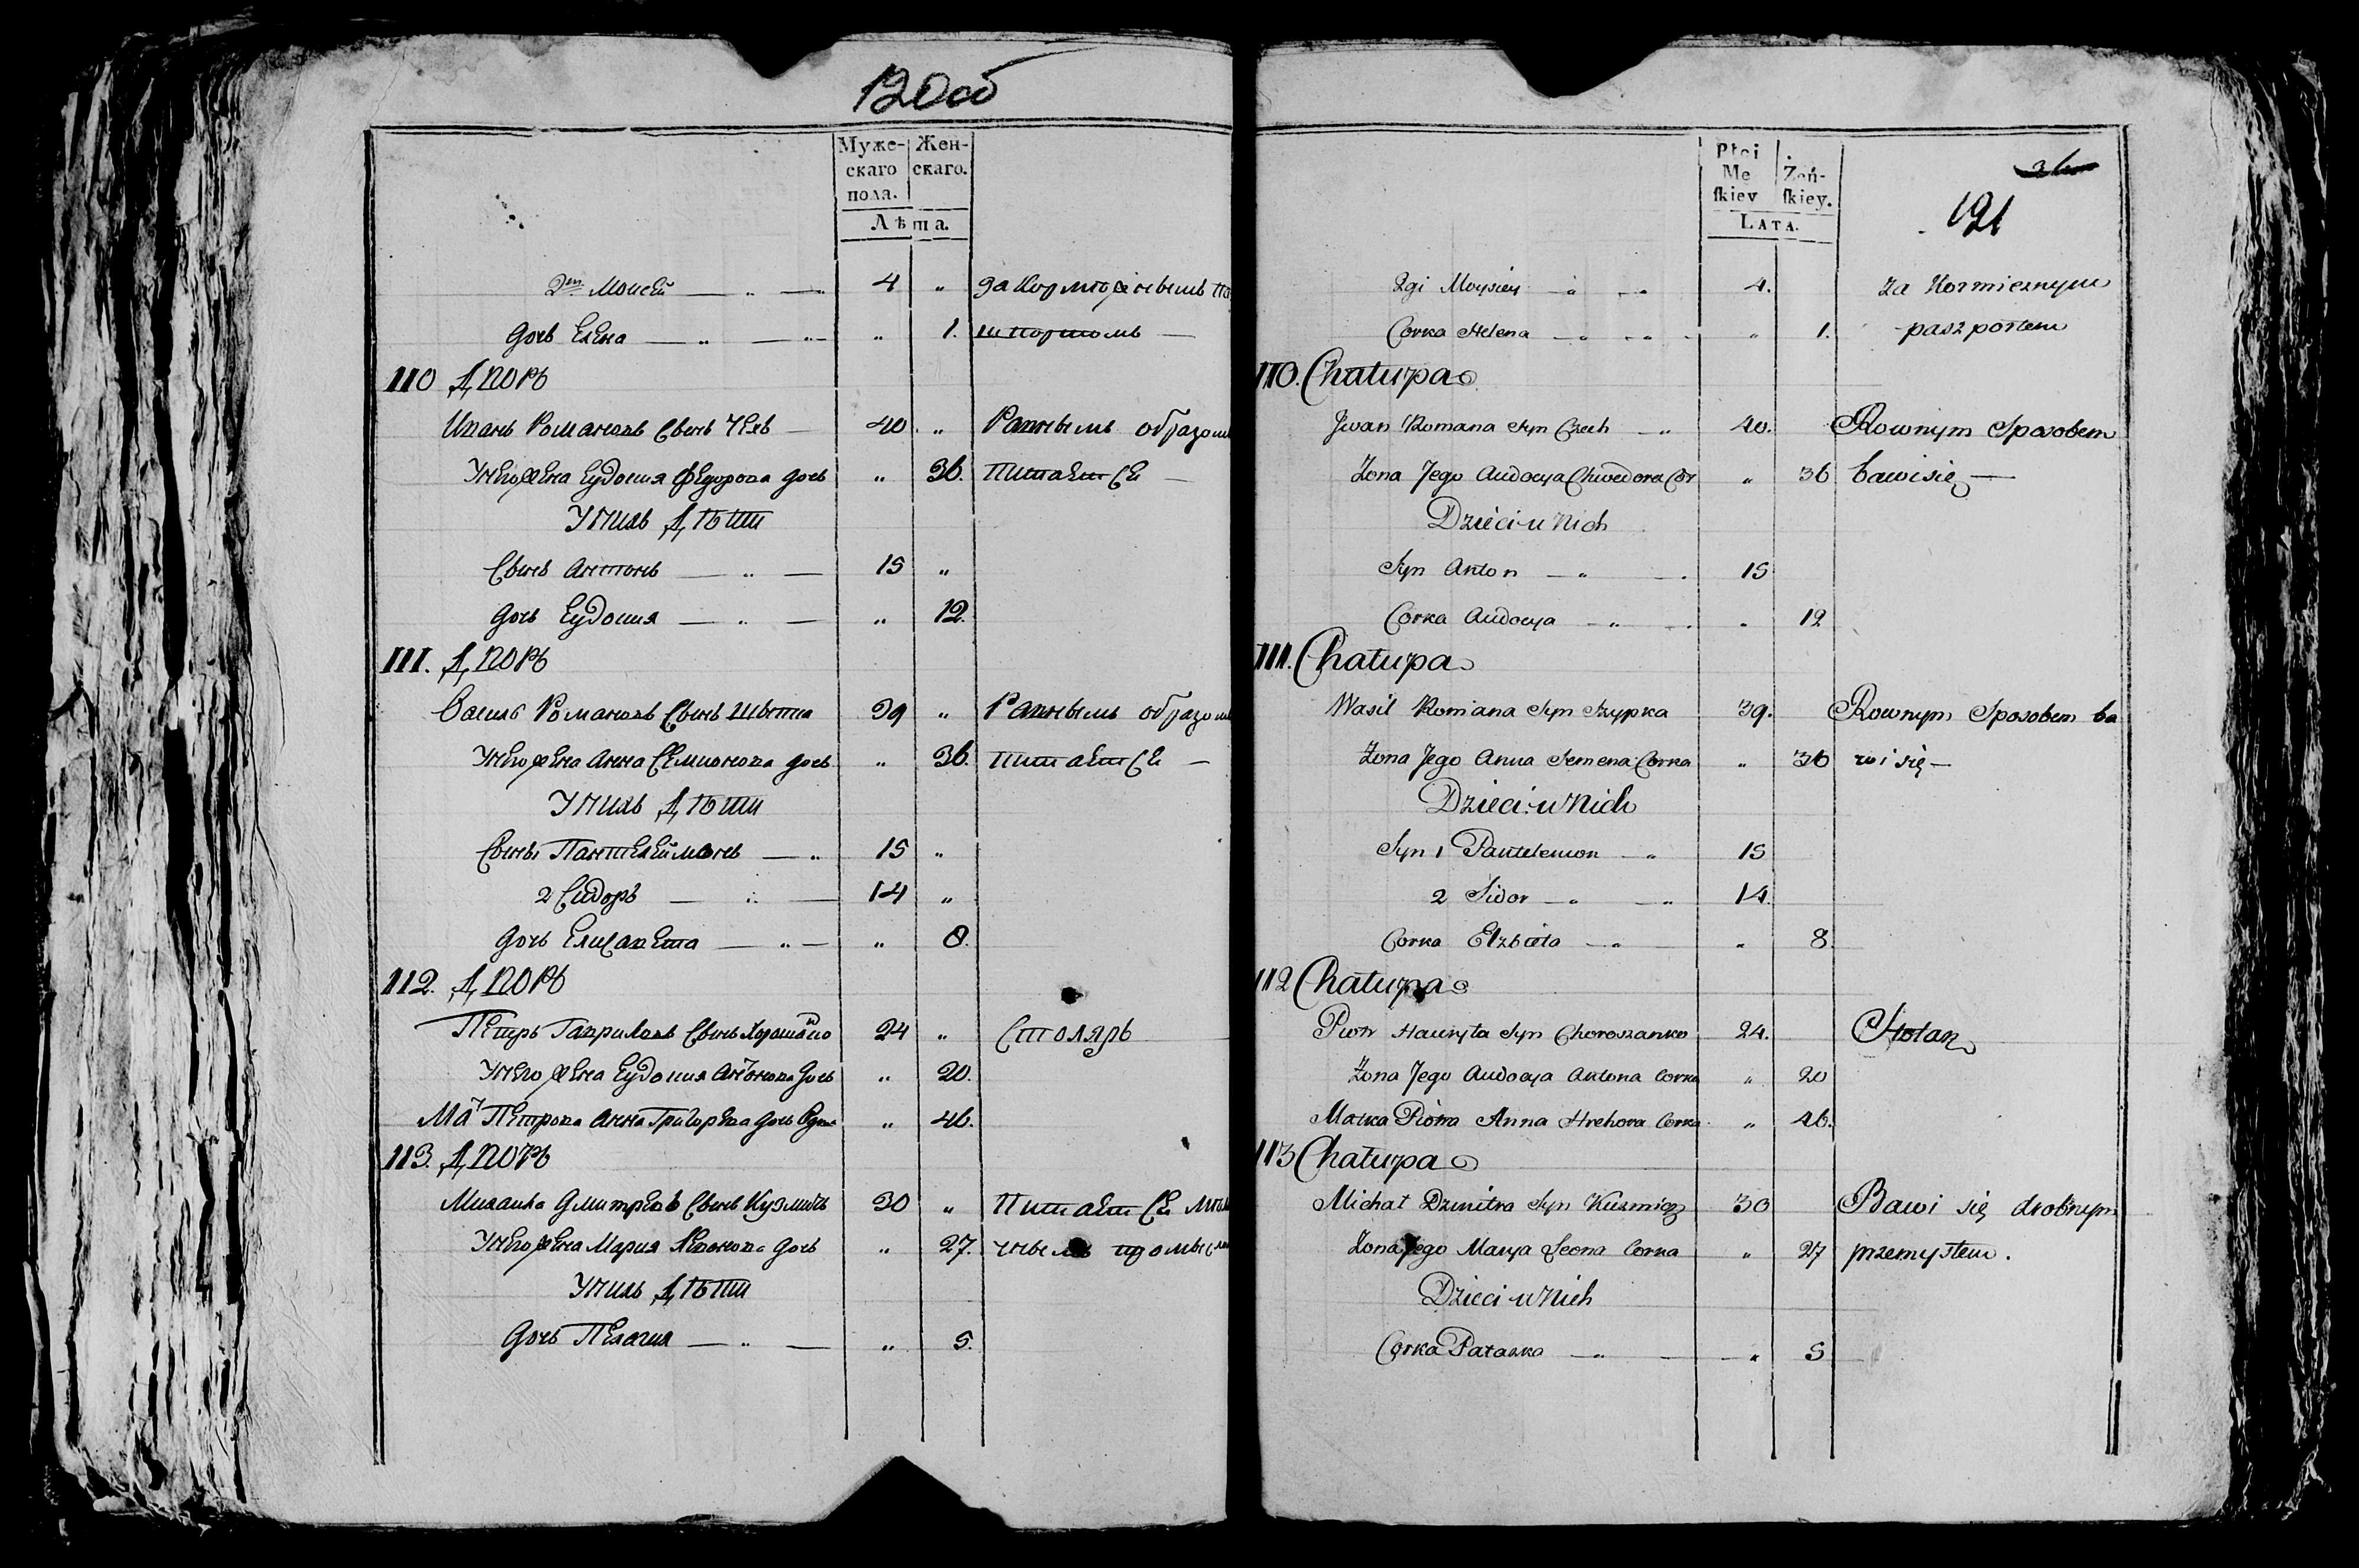 120об
Муже- Жен-
скаго скаго.
пола.
Лѣта.
2й Моисей 4 „ За кормежнымъ па
дочь Елена „ 1. шпортомъ —
110 Дворъ
Иванъ Романовъ сынъ Чехъ 40 „ Равнымъ образом
У него жена Еудокия Федорова дочь „ 36. питается —
У нихъ дѣти
Сынъ Антонъ 15 „
дочь Еудокия „ 12.
111. Дворъ
Василь Романовъ сынъ 39 „ Равнымъ образом
У него жена Анна Семионова дочь „ 36. питается —
У нихъ дѣти
Сынъ 1 Пантелеймонъ 15 „
2 Сидоръ 14 „
дочь Елисавета „ 8.
112. Дворъ
Петръ Гаврилов сынъ 24 „ Столяръ
У него жена Еудокия Антонова дочь „ 20.
Мать Петрова Анна Григорьева дочь „ 46.
113. Дворъ
Михаила Дмитрiевъ сынъ Кузмичъ 30 „ Питается
У него жена Мария Леонова дочь „ 27.
У нихъ дѣти
дочь Пелагия „ 5.
Płci
Me Żeń-
ſkiey ſkiey.
LATA.
121
2gi Moysiey 4. Za Kormieznym
Corka Helena „ 1. paszportem
110. Chałupa
Jwan Romana Syn Czech 40. Rownym Sposobem
Zona Jego Audocya Chwedora Cor „ 36 bawi się —
Dzieci u Nich
Syn Anton 15
Corka Audocya „ 12
111. Chałupa
Wasil Romana Syn Szypka 39. Rownym Sposobem ba
Zona Jego Anna Semena Corka „ 36 wi się —
Dzieci u Nich
Syn 1 Pantelemon 15
2 Sidor 14.
Corka Elzbieta „ 8.
112 Chałupa
Piotr Hawryła Syn Choroszanko 24. Stolarz
Zona Jego Audocya Antona Corka „ 20
Matka Piotra Anna Hrehora Corka „ 46.
113 Chałupa
Michał Dzmitra Syn Kuzmicz 30 Bawi się drobnym
Zona Jego Marya Leona Corka „ 27 przemysłem.
Dzieci u Nich
Corka Pałaszka „ 5